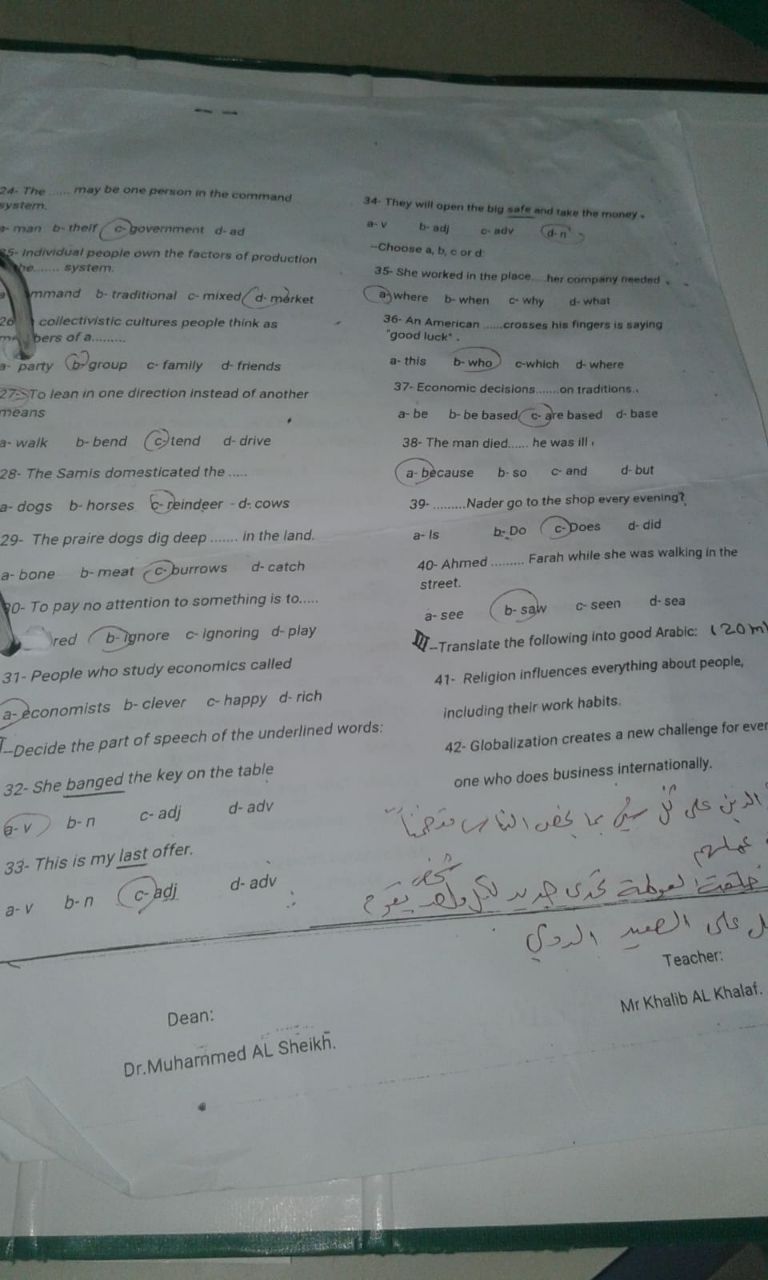 24- The ...... may be one person in the command
system.
a- man b- theif c- government d- ad
25- Individual people own the factors of production
system.
mmand b- traditional c- mixed d- market
26 collectivistic cultures people think as
bers of a.........
a- party b- group c- family d- friends
27- To lean in one direction instead of another
means
a- walk b- bend c- tend d- drive
28- The Samis domesticated the .....
a- dogs b- horses c- reindeer - d- cows
29- The praire dogs dig deep ....... in the land.
a- bone b- meat c- burrows d- catch
30- To pay no attention to something is to.....
red b- ignore c- ignoring d- play
31- People who study economics called
a- economists b- clever c- happy d- rich
--Decide the part of speech of the underlined words:
32- She banged the key on the table
a- v b- n c- adj d- adv
33- This is my last offer.
a- v b- n c- adj d- adv
34- They will open the big safe and take the money .
a- v b- adj c- adv d- n
--Choose a, b, c or d:
35- She worked in the place....her company needed .
a- where b- when c- why d- what
36- An American ......crosses his fingers is saying
"good luck" .
a- this b- who c-which d- where
37- Economic decisions.......on traditions..
a- be b- be based c- are based d- base
38- The man died...... he was ill .
a- because b- so c- and d- but
39- .........Nader go to the shop every evening?
a- Is b- Do c- Does d- did
40- Ahmed ......... Farah while she was walking in the
street.
a- see b- saw c- seen d- sea
III--Translate the following into good Arabic: (20 m
41- Religion influences everything about people,
including their work habits.
42- Globalization creates a new challenge for ever
one who does business internationally.
الدين على كل شيء بما يخص الناس متضمناً
عملهم
شخص
خلقت العولمة تحدي جديد لكل واحد يقوم
على الصعيد الدولي
Teacher:
Mr Khalib AL Khalaf.
Dean:
Dr.Muhammed AL Sheikh.